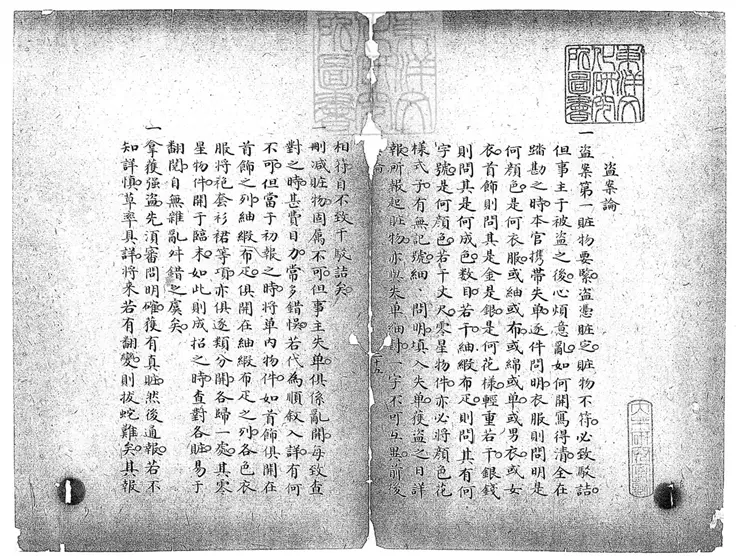 盜案論
一盜案第一賍物要緊盜憑賍定賍物不符必致駁詰
但事主于被盜之後心煩意亂如何開寫得清全在
踏勘之時本官携帶失单逐件問明衣服則問明是
何顔色是何衣服或紬或布或綿或单或男衣或女
衣首飾則問其是金是銀是何花樣輕重若干銀錢
則問其是何成色数目若干紬緞布疋則問其有何
字號是何顔色若干丈尺零星物件亦必将顔色花
様式子有無記號細問明填入失单獲盜之日詳
報所報起賍物亦以失单紬對字不可互異前後
相符自不致干駁詰矣
一刪减賍物固属不可但事主失单俱係亂開每致查
對之時甚費目力常多錯悞若代為順叙入詳有何
不可但當于初報之時将单内物件如首飾俱開在
首飾之列紬緞布疋俱開在紬緞布疋之列各色衣
服将袍套衫裙等項亦俱逐類分開各歸一處其零
星物件開于臨末如此則成招之時查對各賍易于
翻閲自無雜亂舛錯之虞矣
一拿獲强盜先湏審問明確獲有真賍然後通報若不
知詳慎草率具詳将来若有翻變則拔蛇難矣其報